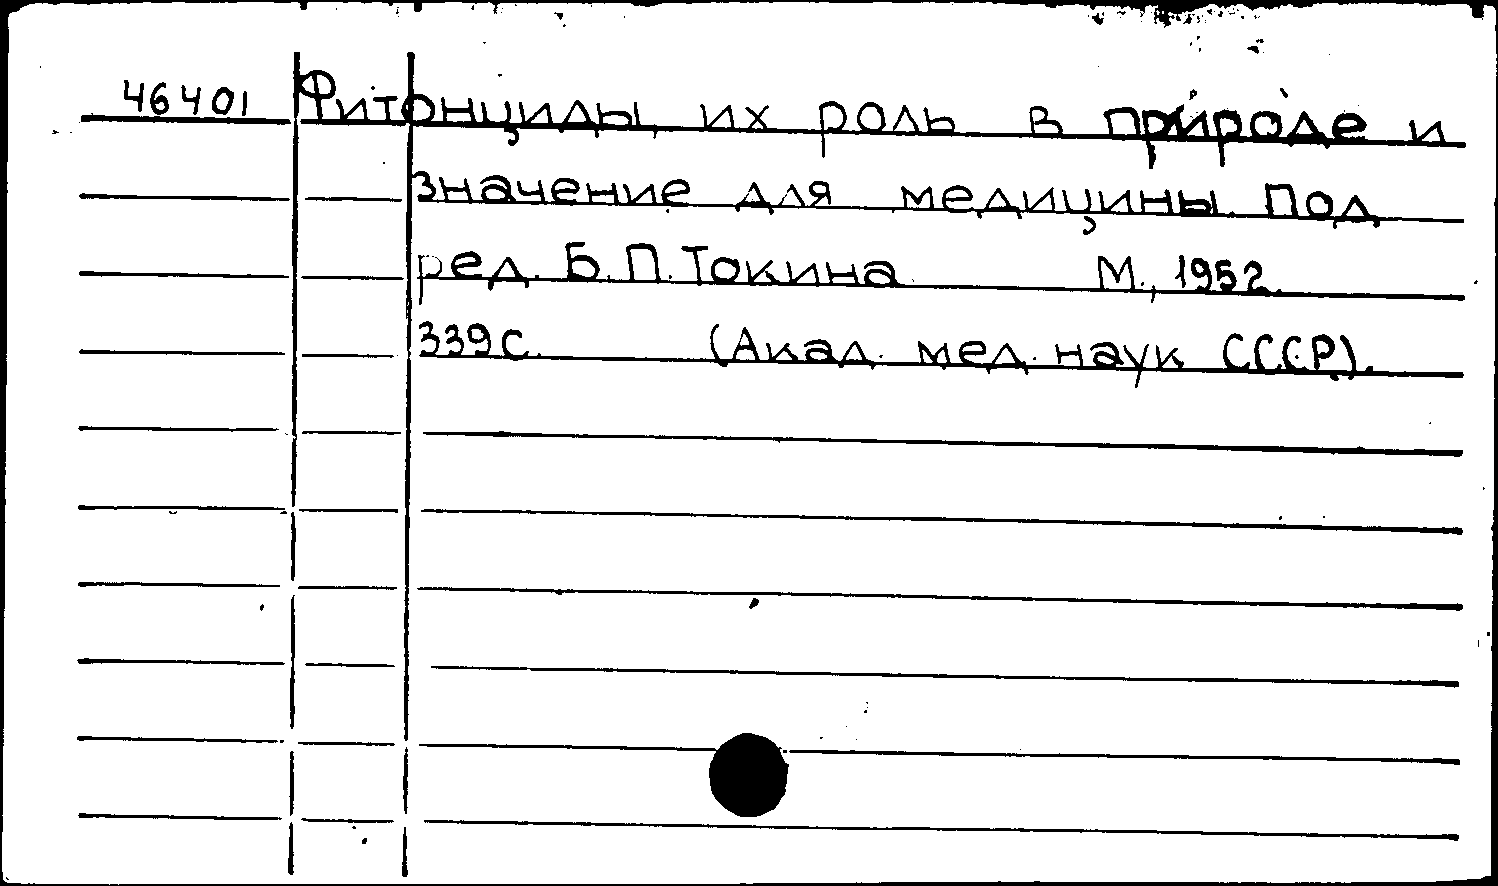 46401 Фитонциды, их роль в природе и
значение для медицины. Под
ред. Б.П.Токина М., 1952.
339с. (Акад. мед. наук СССР).